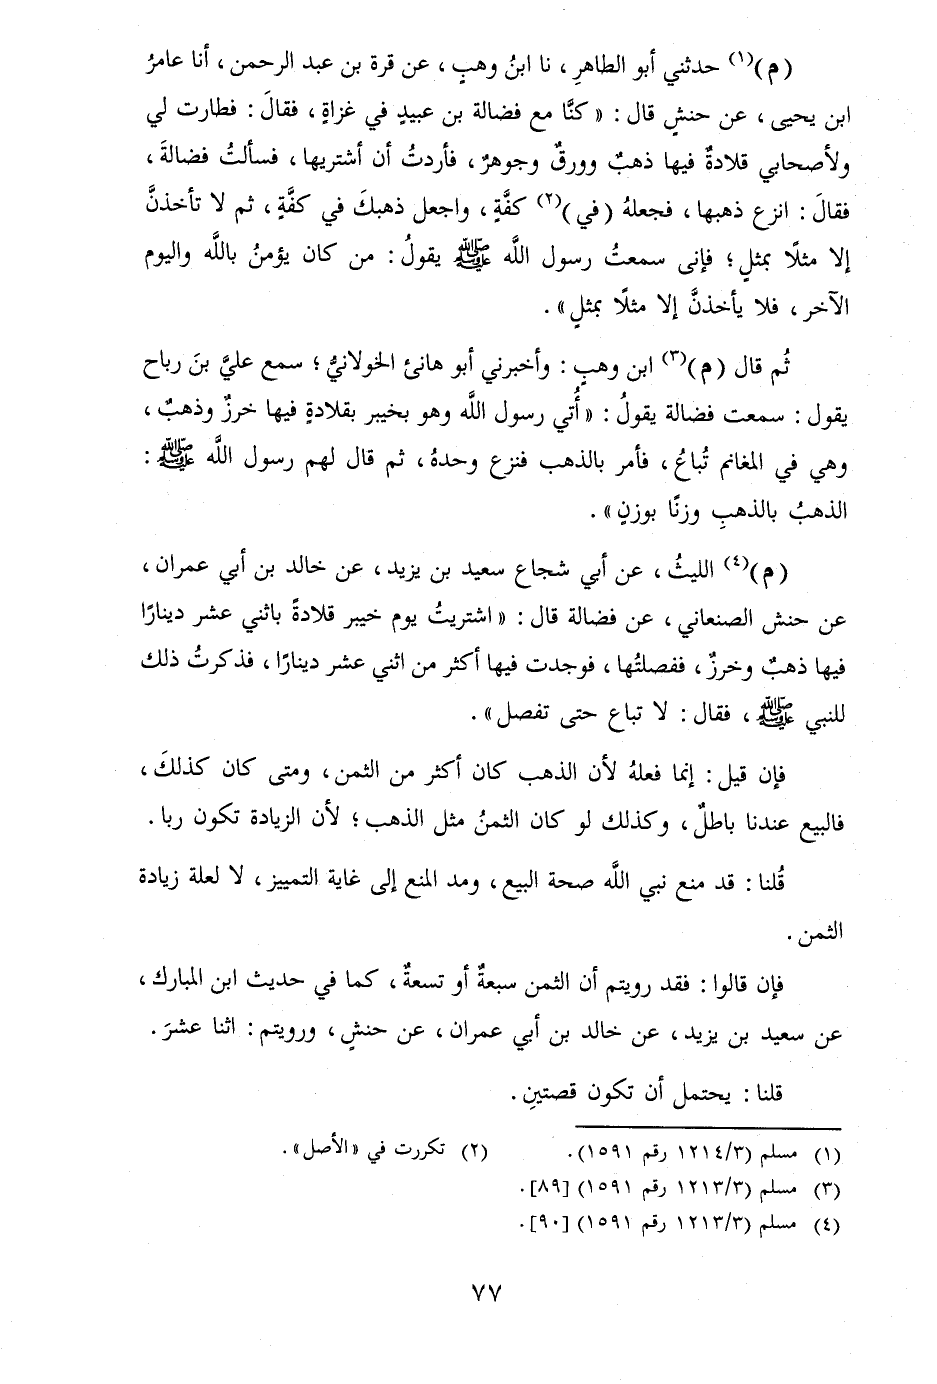 (م)(١) حدثني أبو الطاهرِ ، نا ابنُ وهبٍ ، عن قرة بن عبد الرحمن ، أنا عامرُ
ابن يحيى ، عن حنشٍ قال : « كنَّا مع فضالة بن عبيدٍ في غزاةٍ ، فقالَ : فطارت لي
ولأصحابي قلادةٌ فيها ذهبٌ وورقٌ وجوهرٌ ، فأردتُ أن أشتريها ، فسألتُ فضالةَ ،
فقالَ : انزع ذهبها ، فجعلهُ (في)(٢) كفَّةٍ ، واجعل ذهبكَ في كفَّةٍ ، ثم لا تأخذنَّ
إلا مثلًا بمثلٍ ؛ فإنى سمعتُ رسول اللَّه ﷺ يقولُ : من كان يؤمنُ باللَّه واليوم
الآخر ، فلا يأخذنَّ إلا مثلًا بمثلٍ » .
ثُم قال (م)(٣) ابن وهبٍ : وأخبرني أبو هانئ الخولانيُّ ؛ سمع عليَّ بنَ رباح
يقول : سمعت فضالة يقولُ : « أُتي رسول اللَّه وهو بخيبر بقلادةٍ فيها خرزٌ وذهبٌ ،
وهي في المغانم تُباعُ ، فأمر بالذهب فنزع وحدهُ ، ثم قال لهم رسول اللَّه ﷺ :
الذهبُ بالذهبِ وزنًا بوزنٍ » .
(م)(٤) الليثُ ، عن أبي شجاع سعيد بن يزيد ، عن خالد بن أبي عمران ،
عن حنش الصنعاني ، عن فضالة قال : « اشتريتُ يوم خيبر قلادةً باثني عشر دينارًا
فيها ذهبٌ وخرزٌ ، ففصلتُها ، فوجدت فيها أكثر من اثني عشر دينارًا ، فذكرتُ ذلك
للنبي ﷺ ، فقال : لا تباع حتى تفصل » .
فإن قيل : إنما فعلهُ لأن الذهب كان أكثر من الثمن ، ومتى كان كذلكَ ،
فالبيع عندنا باطلٌ ، وكذلك لو كان الثمنُ مثل الذهب ؛ لأن الزيادة تكون ربا .
قُلنا : قد منع نبي اللَّه صحة البيع ، ومد المنع إلى غاية التمييز ، لا لعلة زيادة
الثمن .
فإن قالوا : فقد رويتم أن الثمن سبعةٌ أو تسعةٌ ، كما في حديث ابن المبارك ،
عن سعيد بن يزيد ، عن خالد بن أبي عمران ، عن حنشٍ ، ورويتم : اثنا عشرَ .
قلنا : يحتمل أن تكون قصتينِ .
(١) مسلم (١٢١٤/٣ رقم ١٥٩١). (٢) تكررت في «الأصل» .
(٣) مسلم (١٢١٣/٣ رقم ١٥٩١) [٨٩] .
(٤) مسلم (١٢١٣/٣ رقم ١٥٩١) [٩٠] .
٧٧